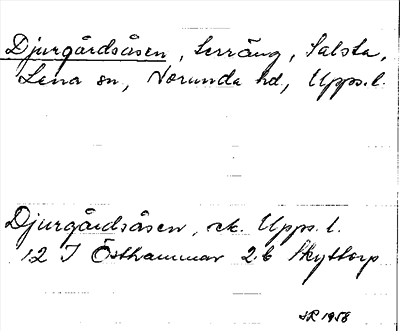 Djurgårdsåsen, terräng, Salsta,
Lena sn, Norunda hd, Upps. l.
Djurgårdsåsen, ek. Upps. l.
12 I Östhammar 2 b Skyttorp
1958